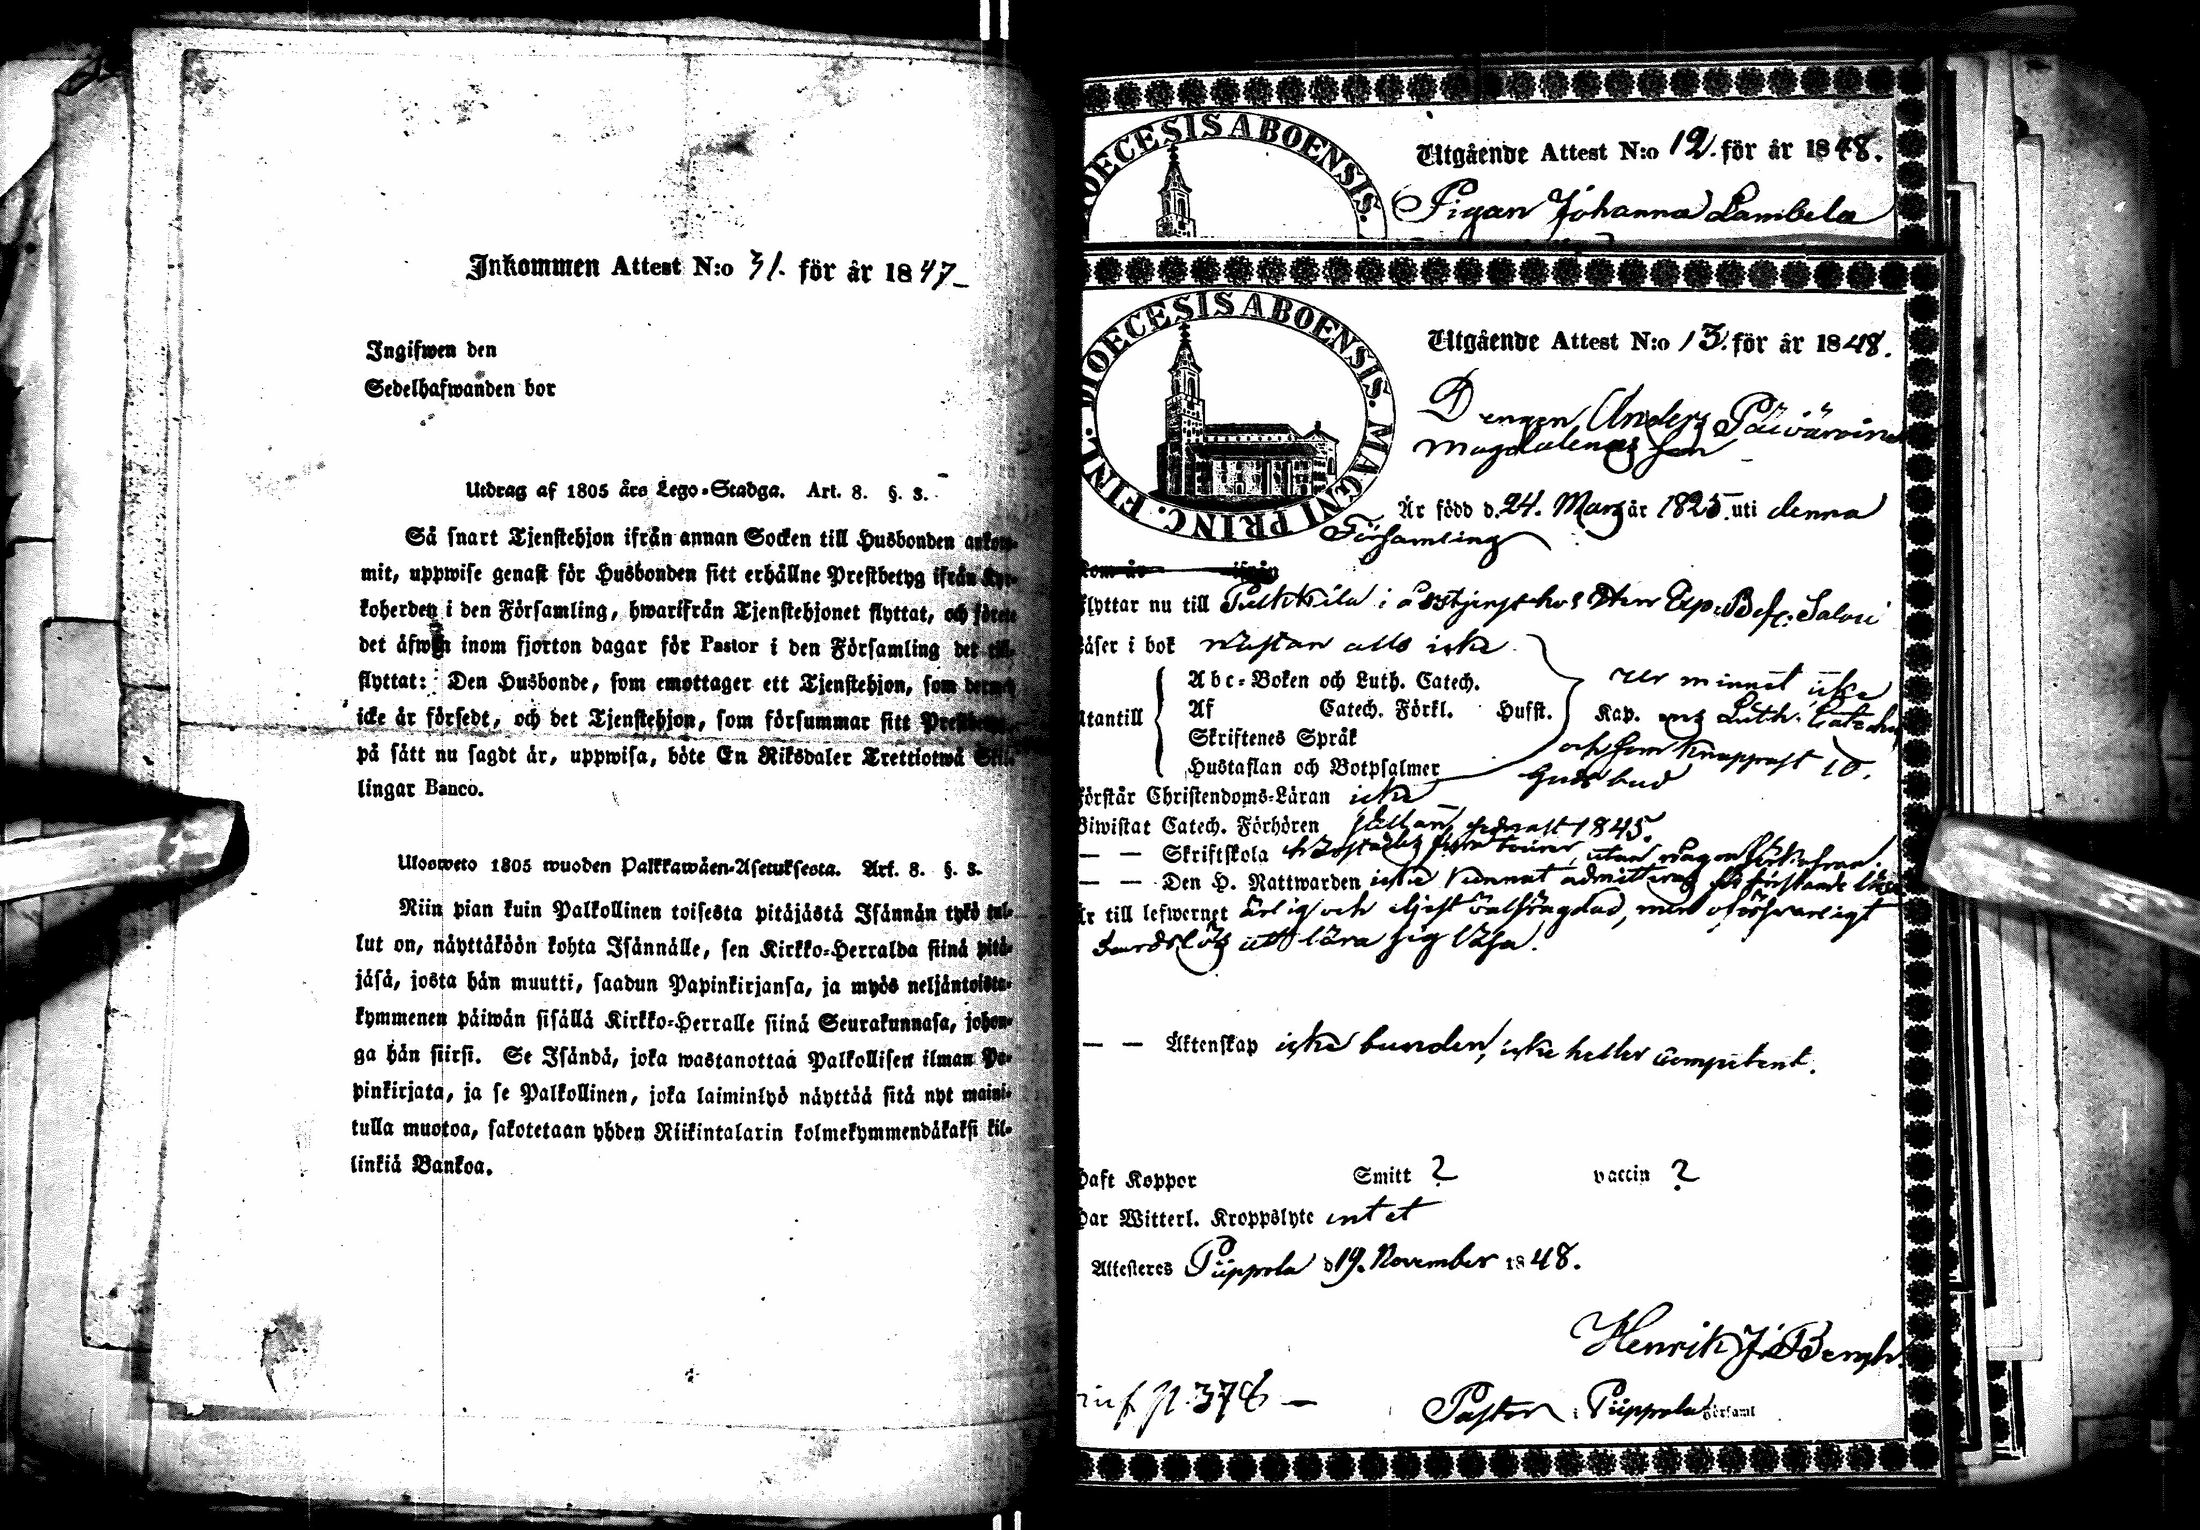 Inkommen Attest N:o 31. för år 1847
Ingifwen den
Sedelhafwanden bor
Utdrag af 1805 års Lego-Stadga. Art. 8. §. 3.
Så snart Tjenstehjon ifrån annan Socken till Husbonden ankom-
mit, uppwise genast för Husbonden sitt erhållne Prestbetyg ifrån Kyr-
koherden i den Församling, hwarifrån Tjenstehjonet flyttat, och förete
det äfwen inom fjorton dagar för Pastor i den Församling det till-
flyttat: Den Husbonde, som emottager ett Tjenstehjon, som dermed
icke är försedt, och det Tjenstehjon, som försummar sitt
på sätt nu sagdt är, uppwisa, böte En Riksdaler Trettiotwå Skil-
lingar Banco.
Ulosweto 1805 wuoden Palkkawäen-Asetuksesta. Art. 8. §. 3.
Niin pian kuin Palkollinen toisesta pitäjästä Isännän tykö tul-
lut on, näyttäköön kohta Isännälle, sen Kirkko-Herralda siinä pitä-
jäsä, josta hän muutti, saadun Papinkirjansa, ja myös neljäntoista-
kymmenen päiwän sisällä Kirkko-Herralle siinä Seurakunnasa, johon-
ga hän siirsi. Se Isändä, joka wastanottaa Palkollisen ilman Pa-
pinkirjata, ja se Palkollinen, joka laiminlyö näyttää sitä nyt maini-
tulla muotoa, sakotetaan yhden Riikintalarin kolmekymmendäkaksi kil-
linkiä Bankoa.
DIOECESIS ABOENSIS.
Utgående Attest N:o 12. för år 1848.
Pigan Johanna Lambela
FINL. DIOECESIS ABOENSIS. MAGNI PRINC.
Utgående Attest N:o 13. för år 1848.
Drengen Anders Päivärinne
Magdalenas son
Är född d. 24. Mars år 1825. uti denna
Församling
flyttar nu till Pulkkila i årstjenst hos Herr Exp. Bef. Salovi
Läser i bok nästan alls icke
Utantill
Abc-Boken och Luth. Catech.
Af Catech. Förkl. Husst. Kap.
Skriftenes Språk
Hustaflan och Botpsalmer
ur minnet icke
ens Luth. Catech.
och som knappast 10.
Guds bud
Förstår Christendoms-Läran icke
Biwistat Catech. Förhören sällan, sednast 1845.
— — Skriftskola utan någon förkofran.
— — Den H. Nattwarden icke kunnat admitteras
Är till lefwernet ärlig och eljest välfrägdad, men oförsvarligt
att lära sig läsa.
— — Äktenskap icke bunden, icke heller competent.
Haft Koppor Smitt ? vaccin ?
Har Witterl. Kroppslyte intet
Attesteres Piippola d 19. November 1848.
Henrik J. Bergh.
inf. p. 378 —
Pastor i Piippola Församl